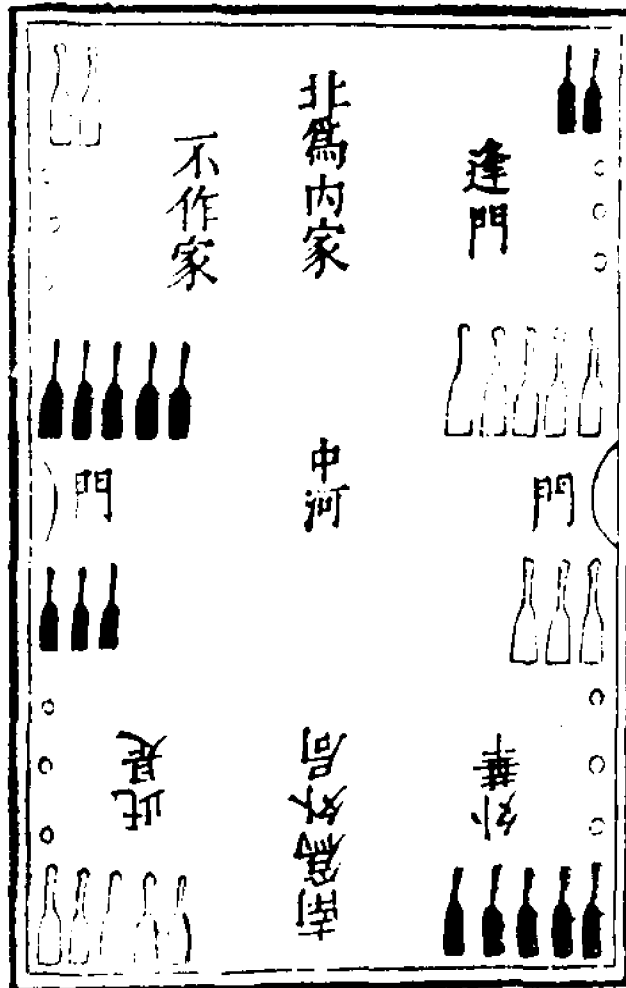 逢門
北爲内家
不作家
門
中河
門
外華
南爲外局
此是